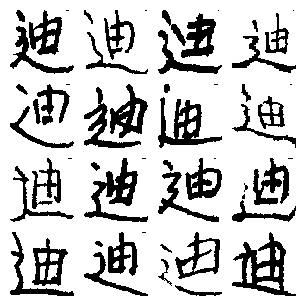 迪迪迪迪
迪迪迪迪
迪迪迪迪
迪迪迪迪